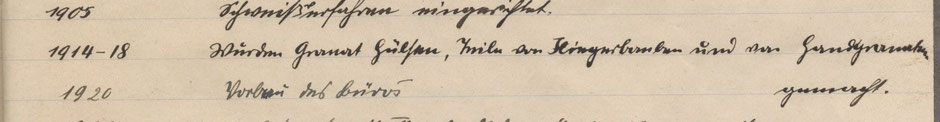 1905 Schweißverfahren eingerichtet.
1914-18 Wurden Granat Hülsen, Teile von Fliegerbomben und von Handgranaten
1920 Vorbau des Büros gemacht.